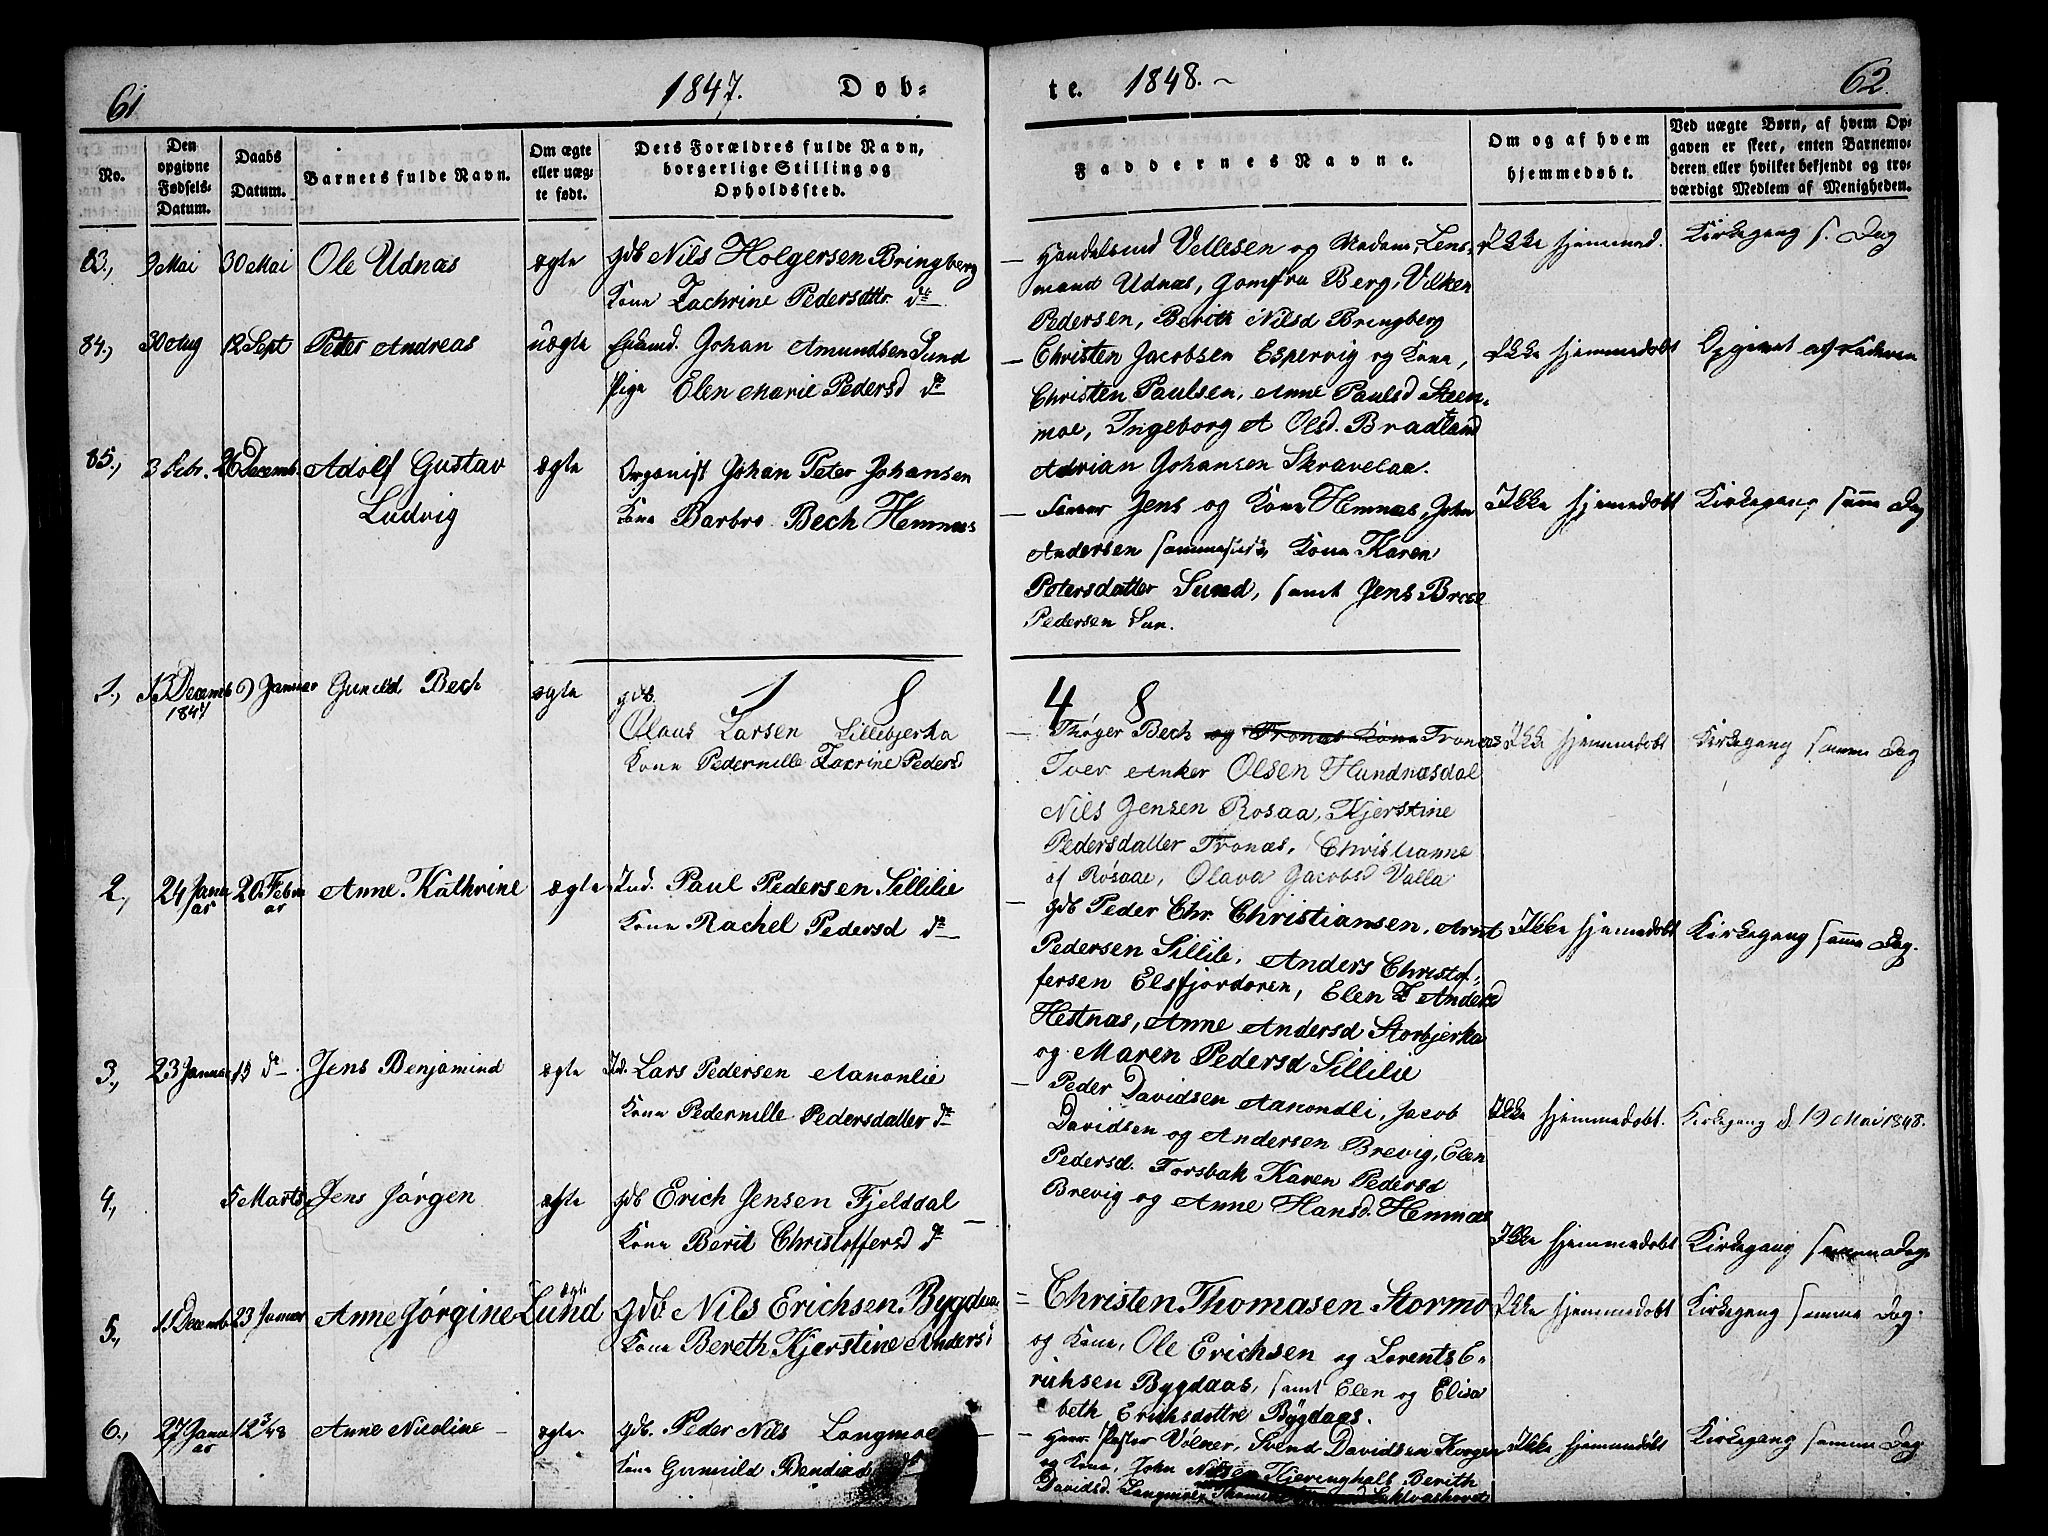 61
1847.
Døb-
te.
1848.
62.
No.
Den
opgivne
Fødsels-
Datum.
Daabs
Datum.
Barnets fulde Navn.
Om ægte
eller uæg-
te født.
Dets Forældres fulde Navn,
borgerlige Stilling og
Opholdssted.
Faddernes Navne.
Om og af hvem
hjemmedøbt.
Ved uægte Børn, af hvem Op-
gaven er skeet, enten Barnemo-
deren eller hvilket bekjendt og tro-
værdigt Medlem af Menigheden.
83., 9 Mai 30 Mai Ole Udnæs ægte gdb Nils Holgersen Bringberg
Kone Zachrine Pedersdttr. do
Vellesen og Madam Lens-
mand Udnæs, Jomfru Berg, Vilken
Pedersen, Berith Nilsd Bringberg
Ikke hjemmed.
Kirkegang s. Dag
84., 30 Aug 12 Sept Peter Andreas uægte Johan Amundsen Sund
Pige Elen Marie Pedersd do
Christen Jacobsen Espervig og Kone,
Christen Paulsen, Anne Paulsd Steen-
moe, Ingeborg A Olsd. Bradtland
Adrian Johansen Skravelaa.
Ikke hjemmedøbt
Opgivet af Faderen
85., 3 Febr. 26 Decemb. Adolf Gustav
Ludvig
ægte Organist Johan Peter Johansen
Kone Barbro Bech Hemnæs
Jens og Kone Hemnæs, John
Andersen sammesteds, Kone Karen
Petersdatter Sund, samt Jens Brose
Pedersen Sun.
Ikke hjemmedøbt
Kirkegang samme Dag
1 8 4 8
1., 13 Decemb
1847
9 Januar Gunild Bech ægte gdb.
Olaus Larsen Lillebjerka
Kone Pedernille Zacrine Pedersd
Thøger Bech og Tronæs Kone Tronæs
Iver Anker Olsen Hundnæsdal
Nils Jensen Rosaa, Kjerstine
Pedersdatter Tronæs, Christianne
Røsaae, Olava Jacobsd Valla
Ikke hjemmedøbt
Kirkegang samme Dag
2., 24 Janu
ar
20 Febru
ar
Anne Kathrine ægte Ind. Paul Pedersen Lillilie
Kone Rachel Pedersd do
gdb Peder Chr. Christiansen, Arnt
Pedersen Lillilie, Anders Christof-
fersen Elsfjordøren, Elen Z Andersd
Hestnæs, Anne Andersd Storbjerka
og Maren Pedersd Lillilie
Ikke hjemmedøbt
Kirkegang samme Dag.
3., 23 Januar do Jens Benjamind ægte Id. Lars Pedersen Aanonlie
Kone Pedernille Pedersdatter do
Peder Davidsen Aanondli, Jacob
Davidsen og Andersen Brevig, Elen
Pedersd. Forsbak Karen Pedersd
Brevig og Anne Hansd. Hemnæs
Ikke hjemmedøbt.
Kirkegang d. 19 Mai 1848.
4., 5 Marts Jens Jørgen ægte gdb Erich Jensen Fjelddal
Kone Berit Christoffersd do
Ikke hjemmedøbt
Kirkegang samme Dag
5., Decemb 23 Januar Anne Jørgine Lund ægte gdb. Nils Erichsen Bygdaas
Kone Bereth Kjerstine Andersd
Christen Thomasen Stormo
og Kone, Ole Erichsen og Lorents E-
richsen Bygdaas, samt Elen og Elisa
beth Erichsdøttre Bygdaas.
Ikke hjemmedøbt
Kirkegang samme Dag.
6., 27 Janu
ar
12 3/48 Anne Nicoline ægte gdb. Peder Nils Langmoe
Kone Gunnild Bendixd do
Herr Pastor Volner, Svend Davidsen Korgen
og Kone, John Nilsen Kjeringhals Berith
Davidsd. Langmoe,
Ikke hjemmedøbt
Kirkegang samme Dag